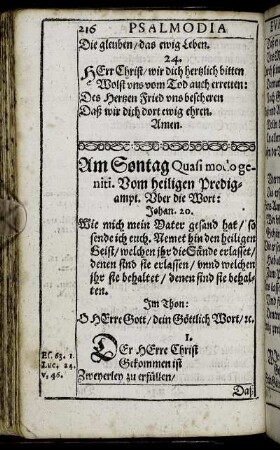 216 PSALMODIA
Die gleuben / das ewig Leben.
24.
HErr Christ / wir dich hertzlich bitten
Wolst vns vom Tod auch erretten:
Des Hertzen Fried vns bescheren
Daß wir dich dort ewig ehren.
Amen.
Am Sontag Quasi modo ge-
niti. Vom heiligen Predig-
ampt. Vber die Wort:
Johan. 20.
Wie mich mein Vater gesand hat / so
sende ich euch. Nemet hin den heiligen
Geist / welchen ihr die Sünde erlasset /
denen sind sie erlassen / vnnd welchen
ihr sie behaltet / denen sind sie behal-
ten.
Im Thon:
O HErre Gott / dein Göttlich Wort / ꝛc.
1.
DEr HErre Christ
Es. 63. 1.
Luc. 24.
v. 46.
Gekommen ist
Zweyerley zu erfüllen /
Daß